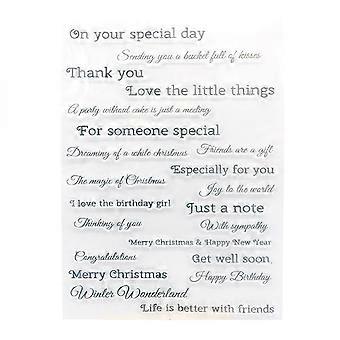 On your special day
Sending you a bucket full of kisses
Thank you
Love the little things
A party without cake is just a meeting
For someone special
Dreaming of a white christmas
Friends are a gift
Especially for you
The magic of Christmas
Joy to the world
I love the birthday girl
Just a note
Thinking of you
With sympathy
Merry Christmas & Happy New Year
Congratulations
Get well soon,
Merry Christmas
Happy Birthday
Winter Wonderland
Life is better with friends